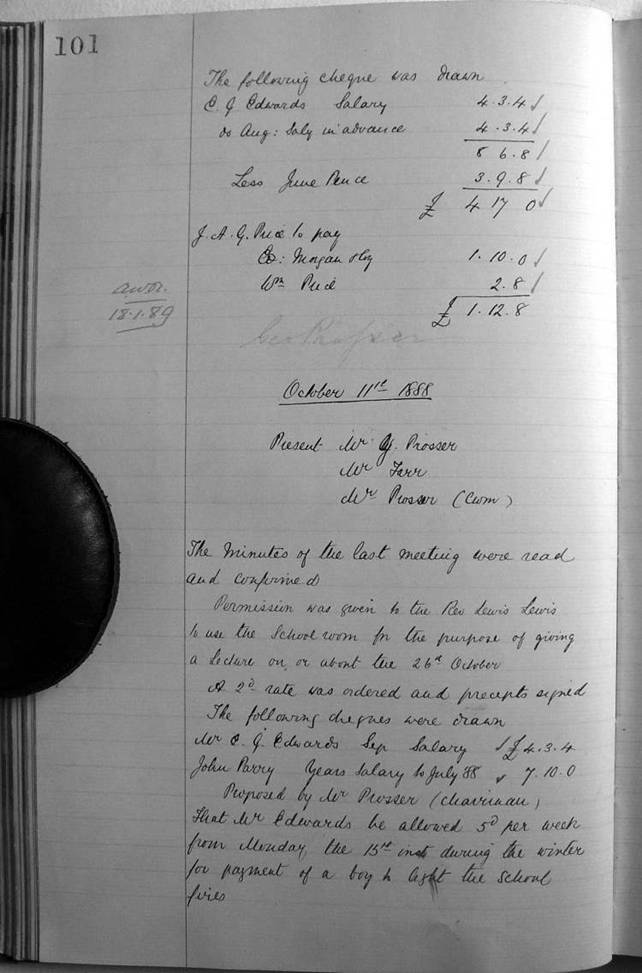 101
The following cheque was drawn
C. J Edwards Salary 4.3.4
do Aug: Saly in advance 4.3.4
8 6.8
Less June Pence 3.9.8
£ 4 17 0
J. A. G. Price to pay
Morgan 1.10.0
Wm Price 2.8
£ 1.12.8
18.1.89
Geo Prosser
October 11th 1888
Present Mr G. Prosser
Mr Farr
Mr Prosser (Cwm)
The Minutes of the last meeting were read
and confirmed
Permission was given to the Rev Lewis Lewis
to use the School room for the purpose of giving
a Lecture on, or about the 26th October
A 2d rate was ordered and precepts signed
The following cheques were drawn
Mr C. J Edwards Sep Salary £4.3.4
John Parry Years Salary to July 88 7.10.0
Proposed by Mr Prosser (Chairman)
That Mr Edwards be allowed 5d per week
from Monday, the 15th inst during the winter
for payment of a boy to light the School
fires